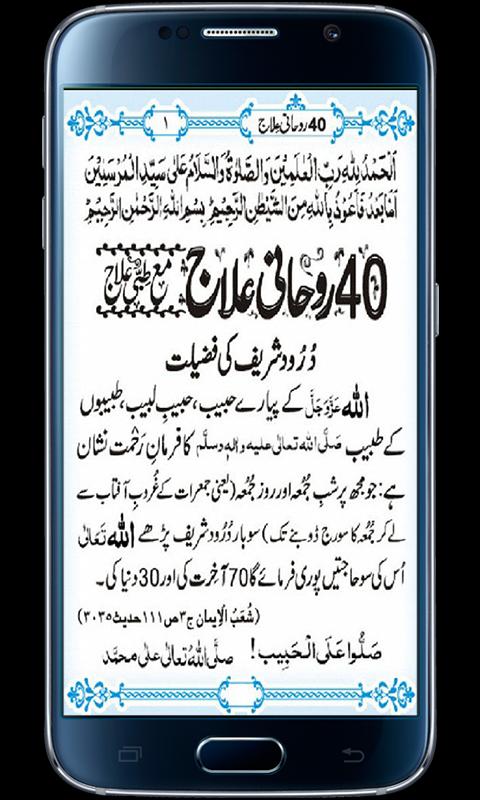 40 روحانی علاج
۱
اَلْحَمْدُ لِلّٰهِ رَبِّ الْعٰلَمِيْنَ وَالصَّلٰوةُ وَالسَّلَامُ عَلٰى سَيِّدِ الْمُرْسَلِيْنَ
اَمَّا بَعْدُ فَاَعُوْذُ بِاللّٰهِ مِنَ الشَّيْطٰنِ الرَّجِيْمِ ط بِسْمِ اللّٰهِ الرَّحْمٰنِ الرَّحِيْمِ ط
40 روحانی علاج مع طبّی علاج
دُرُود شریف کی فضیلت
اللّٰه عَزَّوَجَلَّ کے پیارے حبیب، حبیبِ لبیب، طبیبوں
کے طبیب صَلَّی اللہ تعالٰی علیہ والہٖ وسلَّم کا فرمانِ رَحْمت نشان
ہے: جو مجھ پر شبِ جُمُعہ اور روزِ جُمُعہ (یعنی جمعرات کے غُروبِ آفتاب سے
لے کر جُمُعہ کا سورج ڈوبنے تک) سو بار دُرُود شریف پڑھے اللّٰه تَعَالٰی
اُس کی سو حاجتیں پوری فرمائے گا 70 آخِرت کی اور 30 دنیا کی۔
(شُعَبُ الْاِیمان ج۳ ص۱۱۱ حدیث ۳۰۳۵)
صَلُّوا عَلَی الْحَبِیب! صلَّی اللّٰہُ تعالٰی علٰی محمَّد